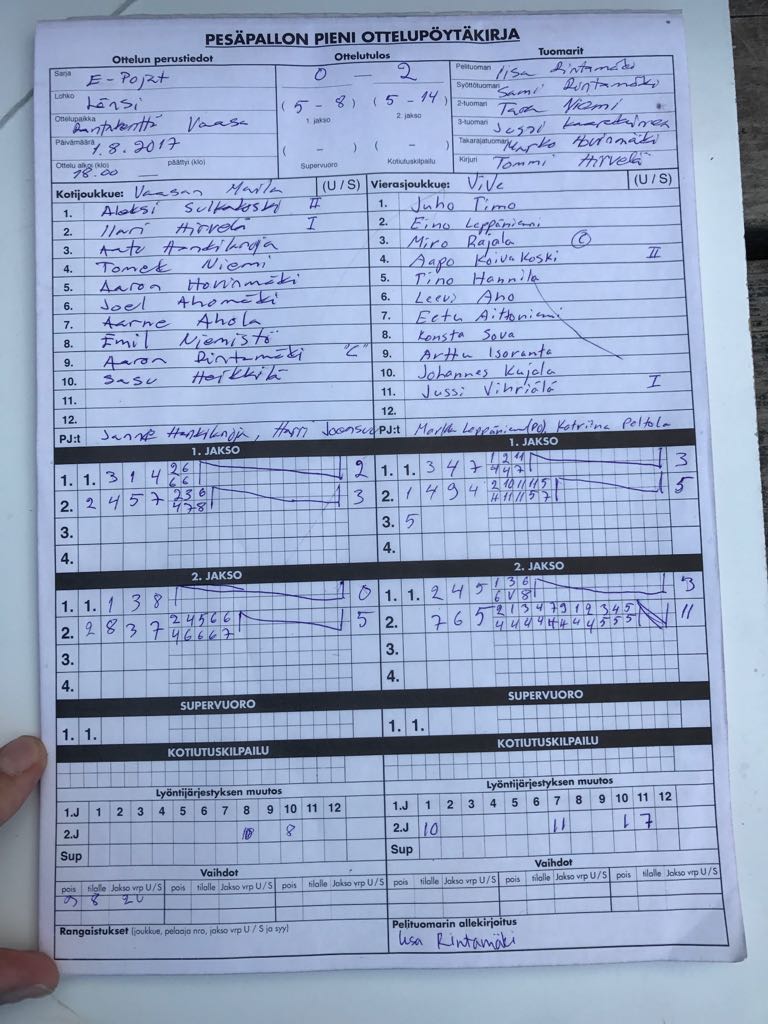 PESÄPALLON PIENI OTTELUPÖYTÄKIRJA
Ottelun perustiedot
Sarja E-Pojat
Lohko Länsi
Ottelupaikka Vaasa
Päivämäärä 1.8.2017
Ottelu alkoi (klo) 18.00 päättyi (klo)
Ottelutulos
0 - 2
(5 - 8) (5 - 14)
1. jakso 2. jakso
( - ) ( - )
Supervuoro Kotiutuskilpailu
Tuomarit
Pelituomari Iisa Rintamäki
Syöttötuomari Sami Rintamäki
2-tuomari Niemi
3-tuomari Jussi
Takarajatuomari Marko Hovinmäki
Kirjuri Tommi Hirvelä
Kotijoukkue: Vaasan Maila (U / S)
1. Aleksi II
2. Ilari Hirvelä I
3.
4. Tomek Niemi
5. Aaron Hovinmäki
6. Joel Ahomäki
7. Aarne Ahola
8. Emil Niemistö
9. Aaron Rintamäki "C"
10. Sasu Heikkilä
11.
12.
PJ:t
Vierasjoukkue: ViVe (U / S)
1. Juho Timo
2. Eino Leppäniemi
3. Miro Rajala C
4. Aapo Koivukoski II
5. Tino Hannila
6. Leevi Aho
7. Eetu Aittoniemi
8. Konsta Sova
9. Arttu Isoranta
10. Johannes Kujala
11. Jussi Vihriälä I
12.
PJ:t Markku Leppäniemi (PJ), Katriina Peltola
1. JAKSO
1. 1. 3 1 4 2 6 2
6 6
2. 2 4 5 7 2 3 6 3
4 7 8
3.
4.
1. JAKSO
1. 1. 3 4 7 1 2 4 3
4 4 7
2. 1 4 9 4 2 10 11 11 5 5
4 11 11 5 7
3. 5
4.
2. JAKSO
1. 1. 1 3 8 0
2. 2 8 3 7 2 4 5 6 6 5
4 6 6 6 7
3.
4.
2. JAKSO
1. 1. 2 4 5 1 3 6 3
2. 7 6 5 11
3.
4.
SUPERVUORO
1. 1.
SUPERVUORO
1. 1.
KOTIUTUSKILPAILU
KOTIUTUSKILPAILU
Lyöntijärjestyksen muutos
1.J 1 2 3 4 5 6 7 8 9 10 11 12
2.J 10 8
Sup
Lyöntijärjestyksen muutos
1.J 1 2 3 4 5 6 7 8 9 10 11 12
2.J 10 11 1 7
Sup
Vaihdot
pois tilalle Jakso vrp U / S pois tilalle Jakso vrp U / S
9 8 2U
Vaihdot
pois tilalle Jakso vrp U / S pois tilalle Jakso vrp U / S
Rangaistukset (joukkue, pelaaja nro, jakso vrp U / S ja syy)
Pelituomarin allekirjoitus
Iisa Rintamäki